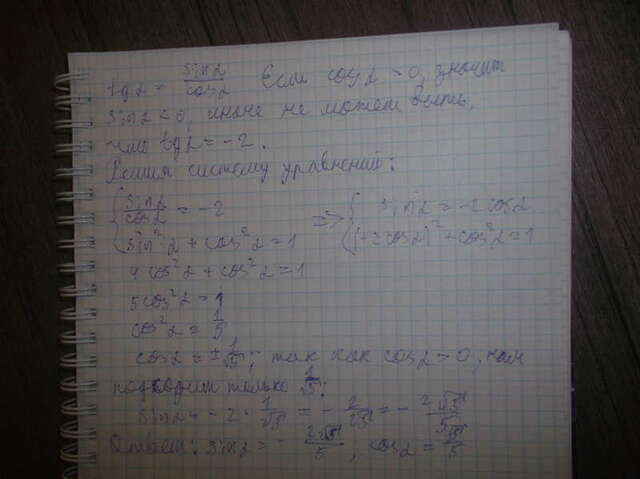 tg α = sin α / cos α Если cos α > 0, значит
sin α < 0, иначе не может быть,
что tg α = -2.
Решим систему уравнений:
{ sin α / cos α = -2 => { sin α = -2 cos α
sin² α + cos² α = 1 (-2 cos α)² + cos² α = 1
4 cos² α + cos² α = 1
5 cos² α = 1
cos² α = 1/5
cos α = ± 1/√5; так как cos α > 0, нам
подходит только 1/√5:
sin α = - 2 · 1/√5 = - 2/√5 = - 2√5/5
Ответ: sin α = - 2√5/5, cos α = √5/5